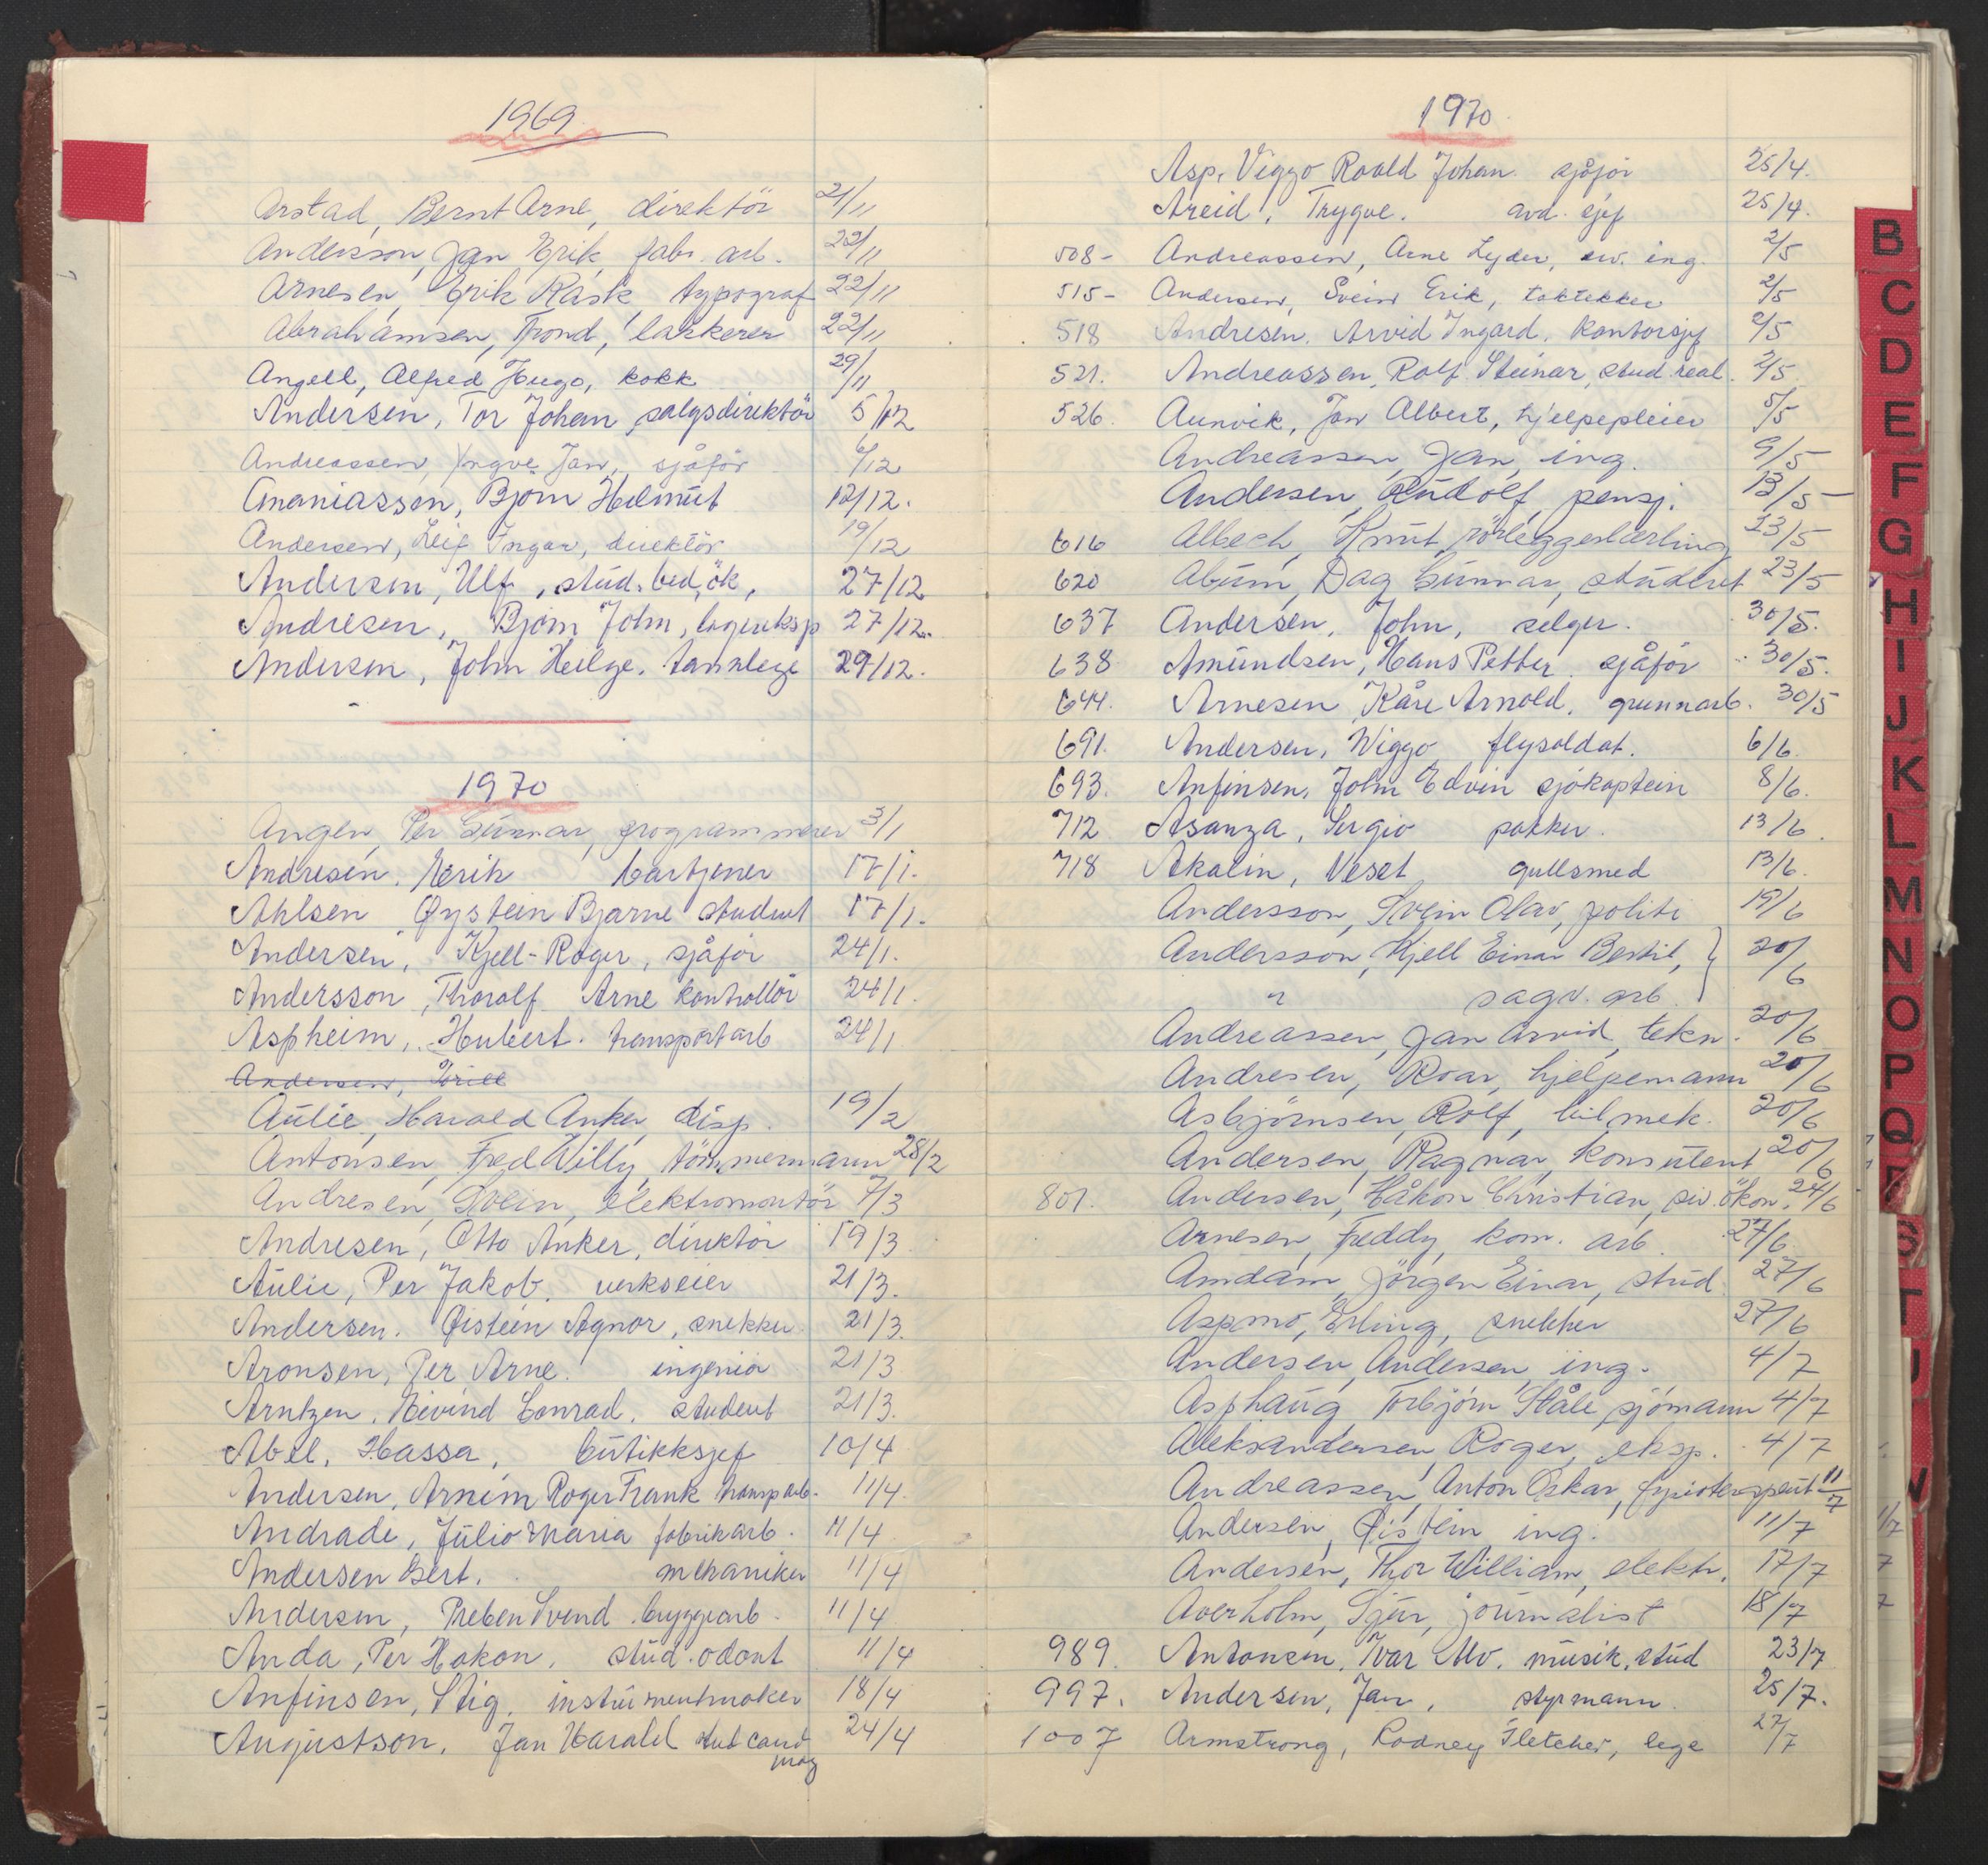 1969
Arstad, Bernt Arne, direktör 21/11
Andersson, Jan Erik, fabr. arb. 22/11
Arnesen, Erik Rask, typograf 22/11
Abrahamsen, Trond, lakkerer 22/11
Angell, Alfred Hugo, kokk 29/11
Andersen, Tor Johan, salgsdirektör 5/12
Andreassen, Yngve Jan, sjåför 6/12
Ananiassen, Björn Helmut 12/12.
Andersen, Leif Ingar, direktör 19/12
Andersen, Ulf, stud. bed. ök, 27/12
Andresen, Bjørn John, lagereksp 27/12.
Andersen, John Helge. tannlege 29/12.
1970
Angen, Per Gunnar, programmerer 3/1
Andresen, Eerik bartjener 17/1.
Ahlsen Øystein Bjarne student 17/1.
Andersen, Kjell-Roger, sjåför 24/1.
Andersson, Thoralf Arne kontrollör 24/1.
Aspheim, Hubert. transportarb 24/1
Andersen, Torill
Aulie, Harald Anker, disp. 19/2
Antonsen, Fred Willy, tömmermann 28/2
Andresen, Svein, elektromontör 7/3
Andresen, Otto Anker, direktör 19/3
Aulie, Per Jakob, verkseier 21/3.
Andersen. Øistein Agnar, snekker 21/3.
Aronsen, Per Arne. ingeniør 21/3
Arntzen, Eivind Conrad. student 21/3.
Abel, Hassa, butikksjef 10/4
Andersen, Arnim Roger Frank transp arb. 11/4.
Andrade, Julio Maria fabrikarb. 11/4
Andersen Bert. mekaniker 11/4
Andersen, Preben Svend bryggearb. 11/4
Anda, Per Hakon. stud. odont 11/4
Anfinsen, Stig, instrumentmaker 18/4
Augustsson, Jan Harald stud cand 24/4
mag
1970
Asp, Viggo Roald Johan sjåför 25/4.
Areid, Trygve. avd. sjef 25/4.
508- Andreassen, Arne Lyder, siv. ing. 2/5
515- Andersen, Svein Erik, taktekker 2/5
518 Andresen, Arvid Ingard, kontorsjef 2/5
521. Andreassen, Rolf Steinar, stud. real. 2/5
526. Aunvik, Jan Albert, hjelpepleier 5/5
Andreassen, Jan, ing. 9/5
Andersen, Rudolf, pensj. 13/5
616 Albech, Knut, rörleggerlærling 23/5
620 Abum, Dag Gunnar, student 23/5
637 Andersen, John, selger. 30/5.
638 Amundsen, Hans Petter. sjåför 30/5.
644. Arnesen, Kåre Arnold, grunnarb. 30/5
691. Andersen, Wiggo flysoldat. 6/6.
693. Anfinsen, John Edvin sjökaptein 8/6.
712 Asanza, Sergio pakker. 13/6.
718 Akalin, Veset gullsmed 13/6.
Andersson, Svein Olav, politi 19/6
Andersson, Kjell Einar Bertil, } 20/6
" sagv. arb.
Andreassen, Jan Arvid, tekn. 20/6
Andresen, Roar, hjelpemann 20/6
Asbjörnsen, Rolf, bilmek. 20/6
Andersen, Ragnar, konsulent 20/6
801. Andersen, Håkon Christian, siv. ökon. 24/6
Arnesen, Freddy, kom. arb. 27/6.
Amdam, Jörgen Einar, stud. 27/6
Aspmo, Erling, snekker 27/6
Andersen, Andersen, ing. 4/7
Asphaug Torbjörn Ståle, sjömann 4/7
Aleksandersen, Roger, eksp. 4/7
Andreassen, Anton Oskar, fysioterapeut 11/7
Andersen, Øistein ing. 11/7
Andersen, Thor William, elektr. 17/7
Averholm, Sjur, journalist 18/7
989. Antonsen, Ivar Alv. musik. stud 23/7
997. Andersen, Jan, styrmann. 25/7.
1007 Armstrong, Rodney Fletcher, lege 27/7
B
C
D
E
F
G
H
I
J
K
L
M
N
O
P
Q
R
S
T
U